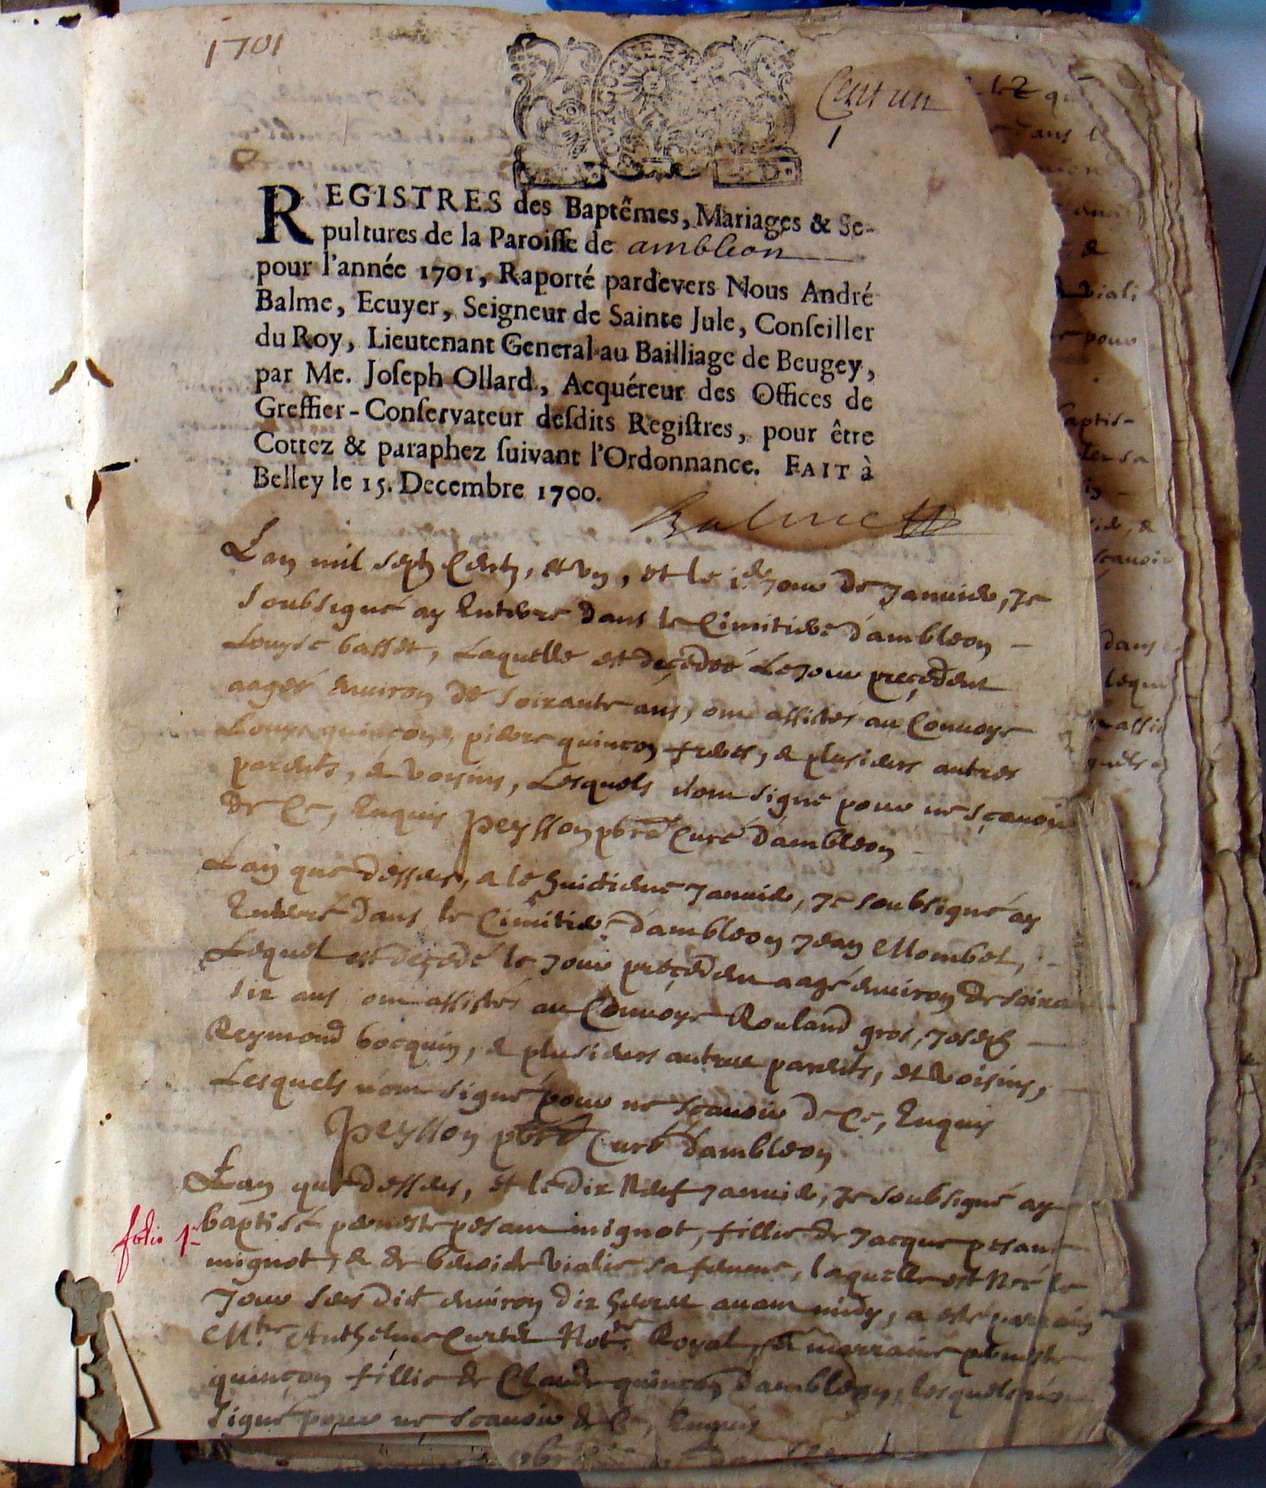 1701
Cent un
1
REGISTRES des Baptêmes, Mariages & Se-
pultures de la Paroisse de ambleon
pour l'année 1701, Raporté pardevers Nous André
Balme, Ecuyer, Seigneur de Sainte Jule, Conseiller
du Roy, Lieutenant General au Bailliage de Beugey,
par Me. Joseph Ollard, Acquéreur des Offices de
Greffier-Conservateur desdits Registres, pour être
Cottez & paraphez suivant l'Ordonnance. FAIT à
Belley le 15. Decembre 1700.
Balme
Lan mil sept Cents, et un, et le jour de Janvier, Je
soubsigné ay Enterre dans le Cimitiere d'ambleon
Louyse basset, Laquelle est decedeé Le jour precedent
aageé environ de soixante ans, ont assistes au Convoye
Louys quinçon, pierre quinçon freres, & plusieurs autres
parents, & voisins, Lesquels n'ont signé pour ne sçavoir
de Ce, Enquis peysson pbre Curé d'ambleon
Lan que dessus, & le huictieme Janvier, Je soubsigné ay
Enterré dans le Cimitiere d'ambleon Jean Mombet,
Lequel est decedé le Jour precedent aagé environ de soixante
six ans ont assistés au Convoye Rouland gros, Joseph
Reymond bocquin, & plusieurs autres parents, et voisins,
Lesquels n'ont signé pour ne sçavoir de Ce, Enquis
peysson pbre Curé d'ambleon
Lan que dessus, et le dix Neuf Janvier, Je soubsigné ay
folio 1
baptisé pernette pesant mignot, fillie de Jacque pesant
mignot, & de vialie sa femme, laquelle est Neé le
Jour susdict environ dix heures avant midy, a esté parrain
Mtre Anthelme Curtet Notre Royal, et marraine pernette
quinçon fillie de Claude quinçon d'ambleon, lesquels n'ont
signé pour ne scavoir de Ce, Enquis